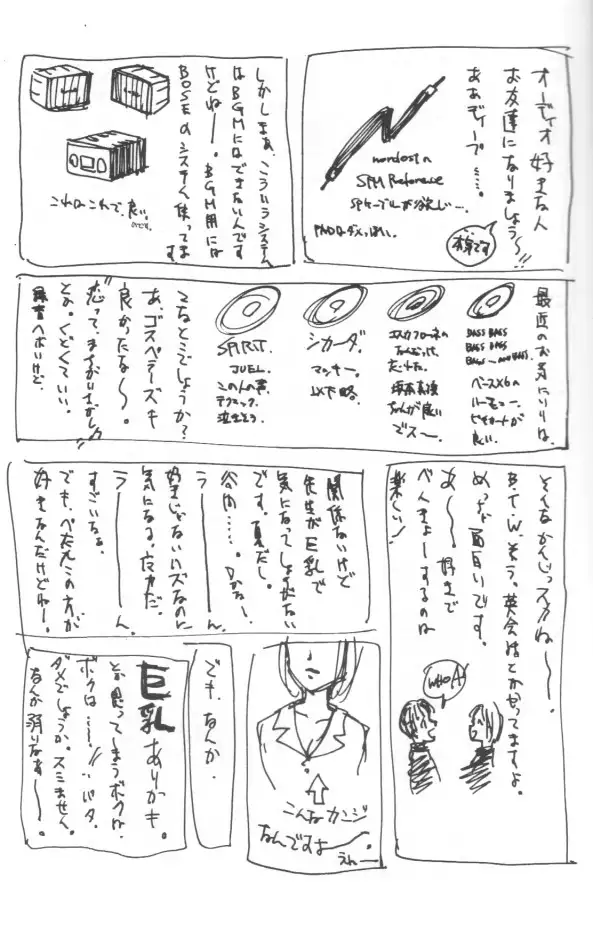 オーディオ好きな人
お友達になりましょう〜!!
ああディープ……。
nordostの
SPM Reference
SPケーブルが欲しい…。
本気です
しかしまぁ、こういうシステム
はBGMにはできないんです
けどね〜。BGM用には
BOSEのシステム使ってま
す
これはこれで良い。
最近のお気にいりは、
BASS BASS
BASS BASS
ベース×6の
ハーモニー。
ピチカートが
良い。
エスカフローネの
坂本真綾
ちゃんが良い
でス〜。
シカーダ。
マッキー。
以下略
SPIRIT.
JUEL.
この人の声、
テクニック、
泣きそう。
こなとこでしょうか?
あ、ゴスペラーズも
良かったな〜。
恋って、まちがいさがし♪
とか。くどくていい。
録音ヘボいけど。
そんなかんじっスかね〜。
B.T.W.そう。英会話とかやってますよ。
めっちゃ面白いです。
あ〜〜。好きで
べんきょーするのは
楽しい!
WHOA!
関係ないけど
先生が巨乳で
気になってしょうがない
です。夏だし。
谷間……。Dかな〜。
う———ん。
好きじゃないハズなのに
気になる。魔力だ。
う———ん。
すごいなぁ。
でも、ぺたんこの方が
好きなんだけどね〜。
こんなカンジ
なんですよ〜。
えへー
でも、なんか、
巨乳ありかも。
とか思ってしまうボクは、
ボクは……!! バタ.
ダメでしょうか。スミません。
なんか弱りなぁ〜。